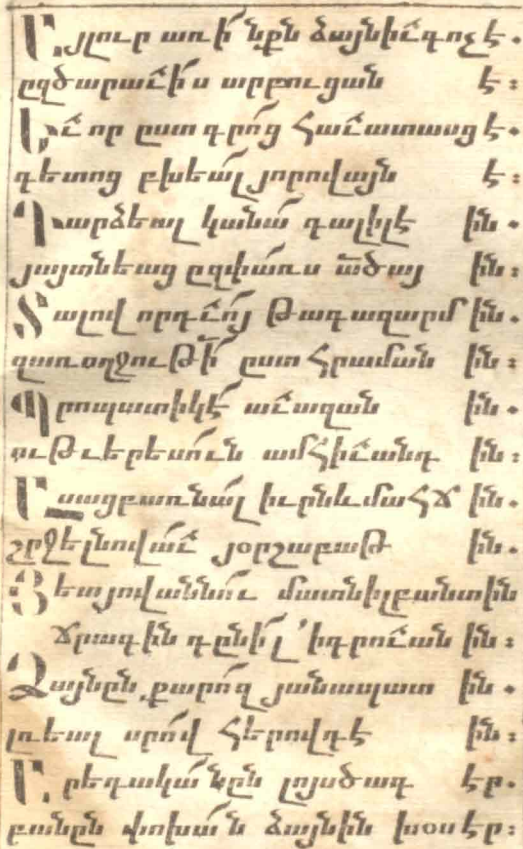 Այլուր առ ի՛նքն ձայնիւ գոչէ.
ըզծարաւի՛ս արբուցան է։
Եւ որ ըստ գրո՛ց հաւատասցէ.
գետոց բխեալ յորովայն է։
Դարձեալ կանա՛ գալիլէ ին.
յայտնեաց ըզփառս ա՟ծայ ին։
Տալով որդւոյ թագազարմ ին.
զառողջութի՛ ըստ հրաման ին։
Պրոպատիկէ՛ աւազան ին.
ութ և երեսուն ամ հիւանդ ին։
Ասաց բառնալ իւրն և մահճ ին.
շրջել նովաւ յօր շաբաթ ին.
Յետ յովաննու մատնիլ բանտին
ճրագին դընիլ ՚ի գրուան ին։
Զայնըն քարոզ յանապատ ին.
լռեալ սրով հերովդէ ին։
Արեգական նըն լոյս ծագ էր.
բանըն փոխան ձայնին խօսէր։